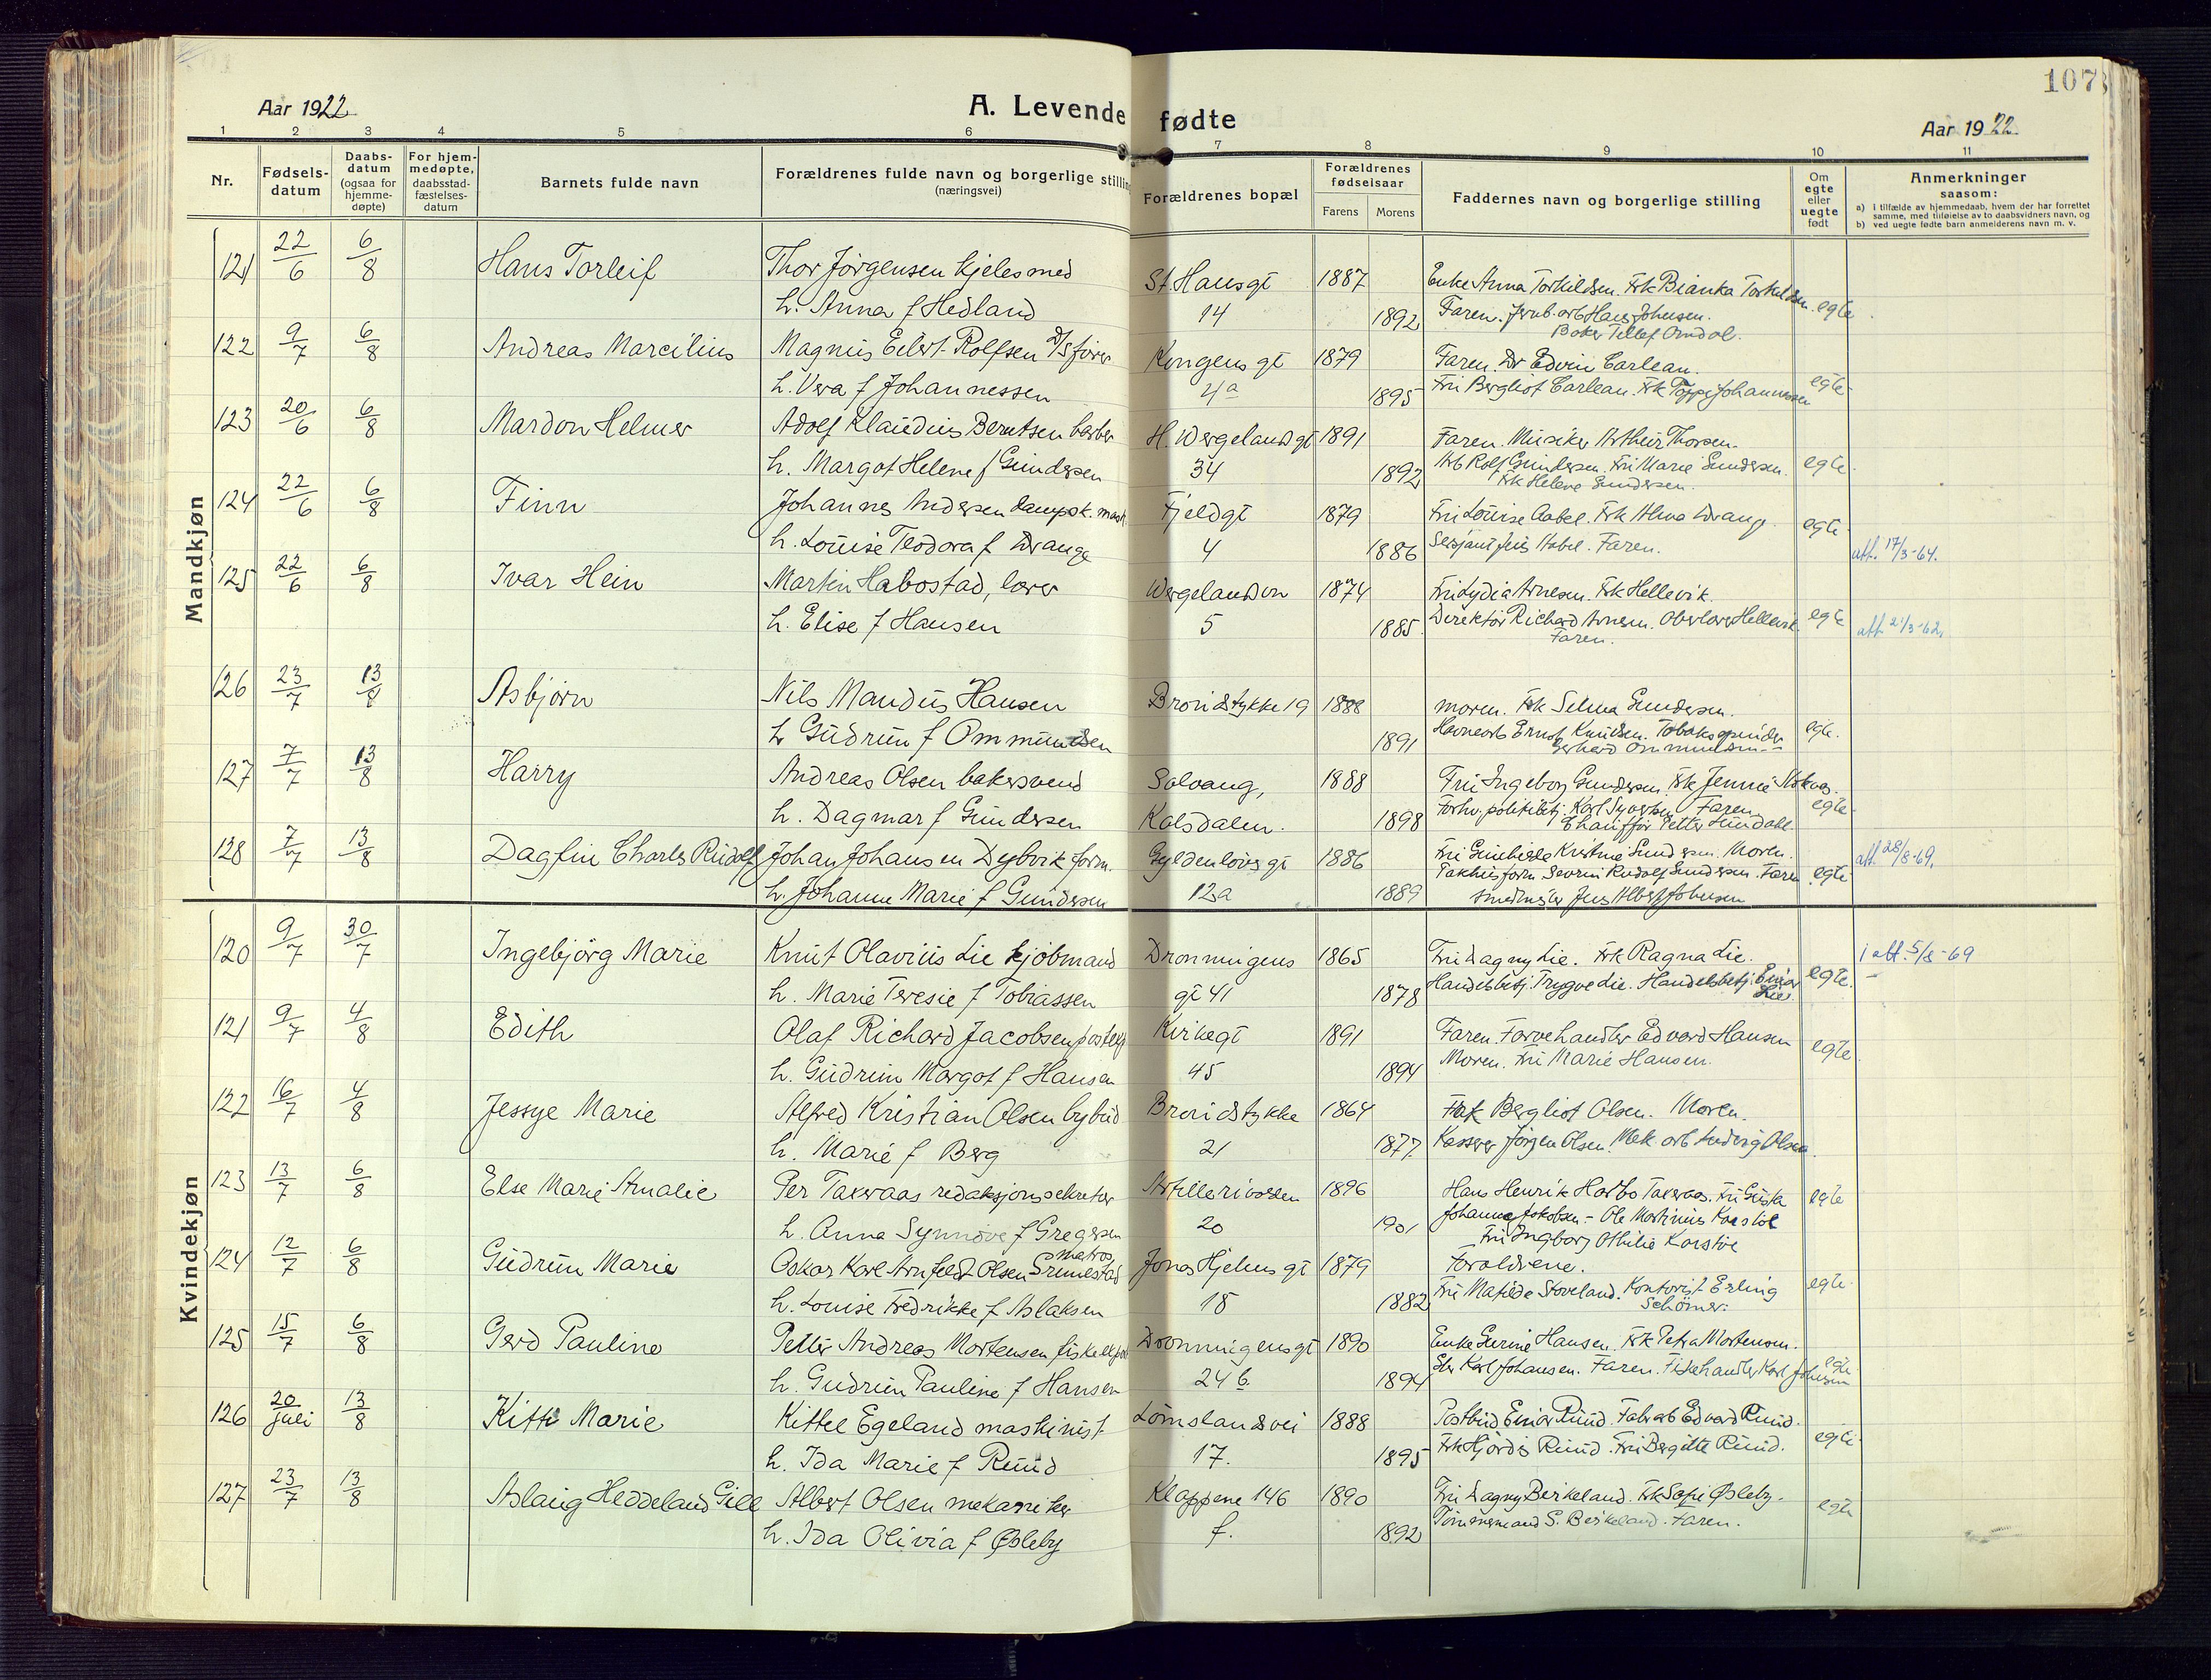 107
Aar 1922
A. Levende fødte
Aar 1922
1 2 3 4 5 6 7 8 9 10 11
Nr.
Fødsels-
datum
Daabs-
datum
(ogsaa for
hjemme-
døpte)
For hjem-
medøpte,
daabsstad-
fæstelses-
datum
Barnets fulde navn
Forældrenes fulde navn og borgerlige stilling
(næringsvei)
Forældrenes bopæl
Forældrenes
fødselsaar
Farens Morens
Faddernes navn og borgerlige stilling
Om
egte
eller
uegte
født
Anmerkninger
saasom:
a) i tilfælde av hjemmedaab, hvem der har forrettet
samme, med tilføielse av to daabsvidners navn, og
b) ved uegte fødte barn anmelderens navn m. v.
Mandkjøn
121 22/6 6/8 Hans Torleif Thor Jørgensen kjelesmed St. Hansgt 1887 Enke Anna Torkildsen. Frk Bianka Torkildsen. egte
h. Anna f Hedland 14 1892 Faren. Jernb. arb Hans Johnsen.
Baker Tellef Omdal.
122 9/7 6/8 Andreas Marcilius Magnus Eilert Rolfsen D/S fører Kongens gt 1879 Faren. Dr Edvin Carlean.
h. Vera f Johannessen 4a 1895 Fru Bergliot Carlean. Frk Toppi Johannessen egte
123 20/6 6/8 Mardon Helmer Adolf Klaudius Berntsen barber H. Wergelandgt 1891 Faren. Musiker Arthur Thorsen.
h. Margot Helene f Gundersen 34 1892 Arb Rolf Gundersen. Fru Marie Gundersen. egte
Frk Helene Gundersen.
124 22/6 6/8 Finn Johannes Andersen dampsk. mask. Fjeldgt 1879 Fru Louise Aabel. Frk Alma Drange. egte
h. Louise Teodora f Drange 4 1886 Sersjant Jens Aabel. Faren. att. 17/3-64.
125 22/6 6/8 Ivar Hein Martin Habostad, lærer Wergelandvn 1874 Fru Lydia Arnesen. Frk Hellevik.
h. Elise f Hansen 5 1885 Direktør Richard Arnesen. Overlærer Hellevik. egte att 21/3-62.
Faren.
126 23/7 13/8 Asbjørn Nils Mandius Hansen Bronidstykke 19 1888 moren. Frk Selma Gundersen.
h Gudrun f Ommundsen 1891 Havnearb Ernst Knudsen. Tobakspinder egte.
Gerhard Ommundsen
127 7/7 13/8 Harry Andreas Olsen bakersvend Solvang, 1888 Fru Ingeborg Gundersen. Frk Jennie
h. Dagmar f Gundersen Kolsdalen. 1898 Forhv. politibtj. Karl Syvertsen Faren. egte
Chauffør Petter Sundahl.
128 7/7 13/8 Dagfin Charles Rudolf Johan Johansen Dybvik form. Gyldenløvsgt 1886 Fru Gunhilde Kristine Gundersen. Moren. att. 28/8-69.
h. Johanne Marie f Gundersen 12a 1889 Pakhusform Severin Rudolf Gundersen. Faren egte
smedmester Jens Albert Johnsen
Kvindekjøn
120 9/7 30/7 Ingebjørg Marie Knut Olavius Lie kjøbmand Dronningens 1865 Fru Dagny Lie. Frk Ragna Lie. 1 att. 5/8-69
h. Marie Teresie f Tobiassen gt 41 1878 Handelsbtj. Trygve Lie. Handelsbetj. Einar egte.
Lie.
121 9/7 4/8 Edith Olaf Richard Jacobsen posteksp Kirkegt 1891 Faren. Farvehandler Edvard Hansen
h. Gudrun Margot f Hansen 45 1894 Moren. Fru Marie Hansen. egte
122 16/7 4/8 Jessye Marie Alfred Kristian Olsen bybud Bronidstykke 1864 Frk Bergliot Olsen. Moren.
h. Marie f Berg 21 1877 Kasserer Jørgen Olsen. Mek. arb Ludvig Olsen.
123 13/7 6/8 Else Marie Amalie Per Takvaas redaksjonssekretær Artillerivolden 1896 Hans Henrik Harbo Fru Gusta egte
h. Anna Synnøve f Gregersen 20 1901 Johanne Jakobsen - Ole Martinius Korstøe
Fru Ingborg Othilie Korstøe
124 12/7 6/8 Gudrun Marie Oskar Karl Arnfeldt Olsen matros Jonas Hjelmsgt 1879 Forældrene.
h. Louise Fredrikke f Aslaksen 18 1882 Fru Matilde Støveland. Kontorist Erling egte
125 15/7 6/8 Gerd Pauline Petter Andreas Mortensen fiskeeksp Dronningensgt 1890 Enke Gurine Hansen. Frk Petra Mortensen.
h. Gudrun Pauline f Hansen 24 b. 1894 Karl Johansen. Faren. Fiskehandler Karl Johansen egte
126 20 juli 13/8 Kitti Marie Kittel Egeland maskinist Lømslandsvei 1888 Postbud Einar Ruud. Fabr arb Edvard Ruud.
h. Ida Marie f Ruud 17. 1895 Frk Hjørdis Ruud. Fru Bergitte Ruud. egte
127 23/7 13/8 Aslaug Heddeland Gill Albert Olsen mekaniker Kloppene 146 1890 Fru Dagny Berkeland. Frk Sofie Øsleby.
h. Ida Olivia f Øsleby f. 1892 Tømmermand S. Berkeland. Faren. egte